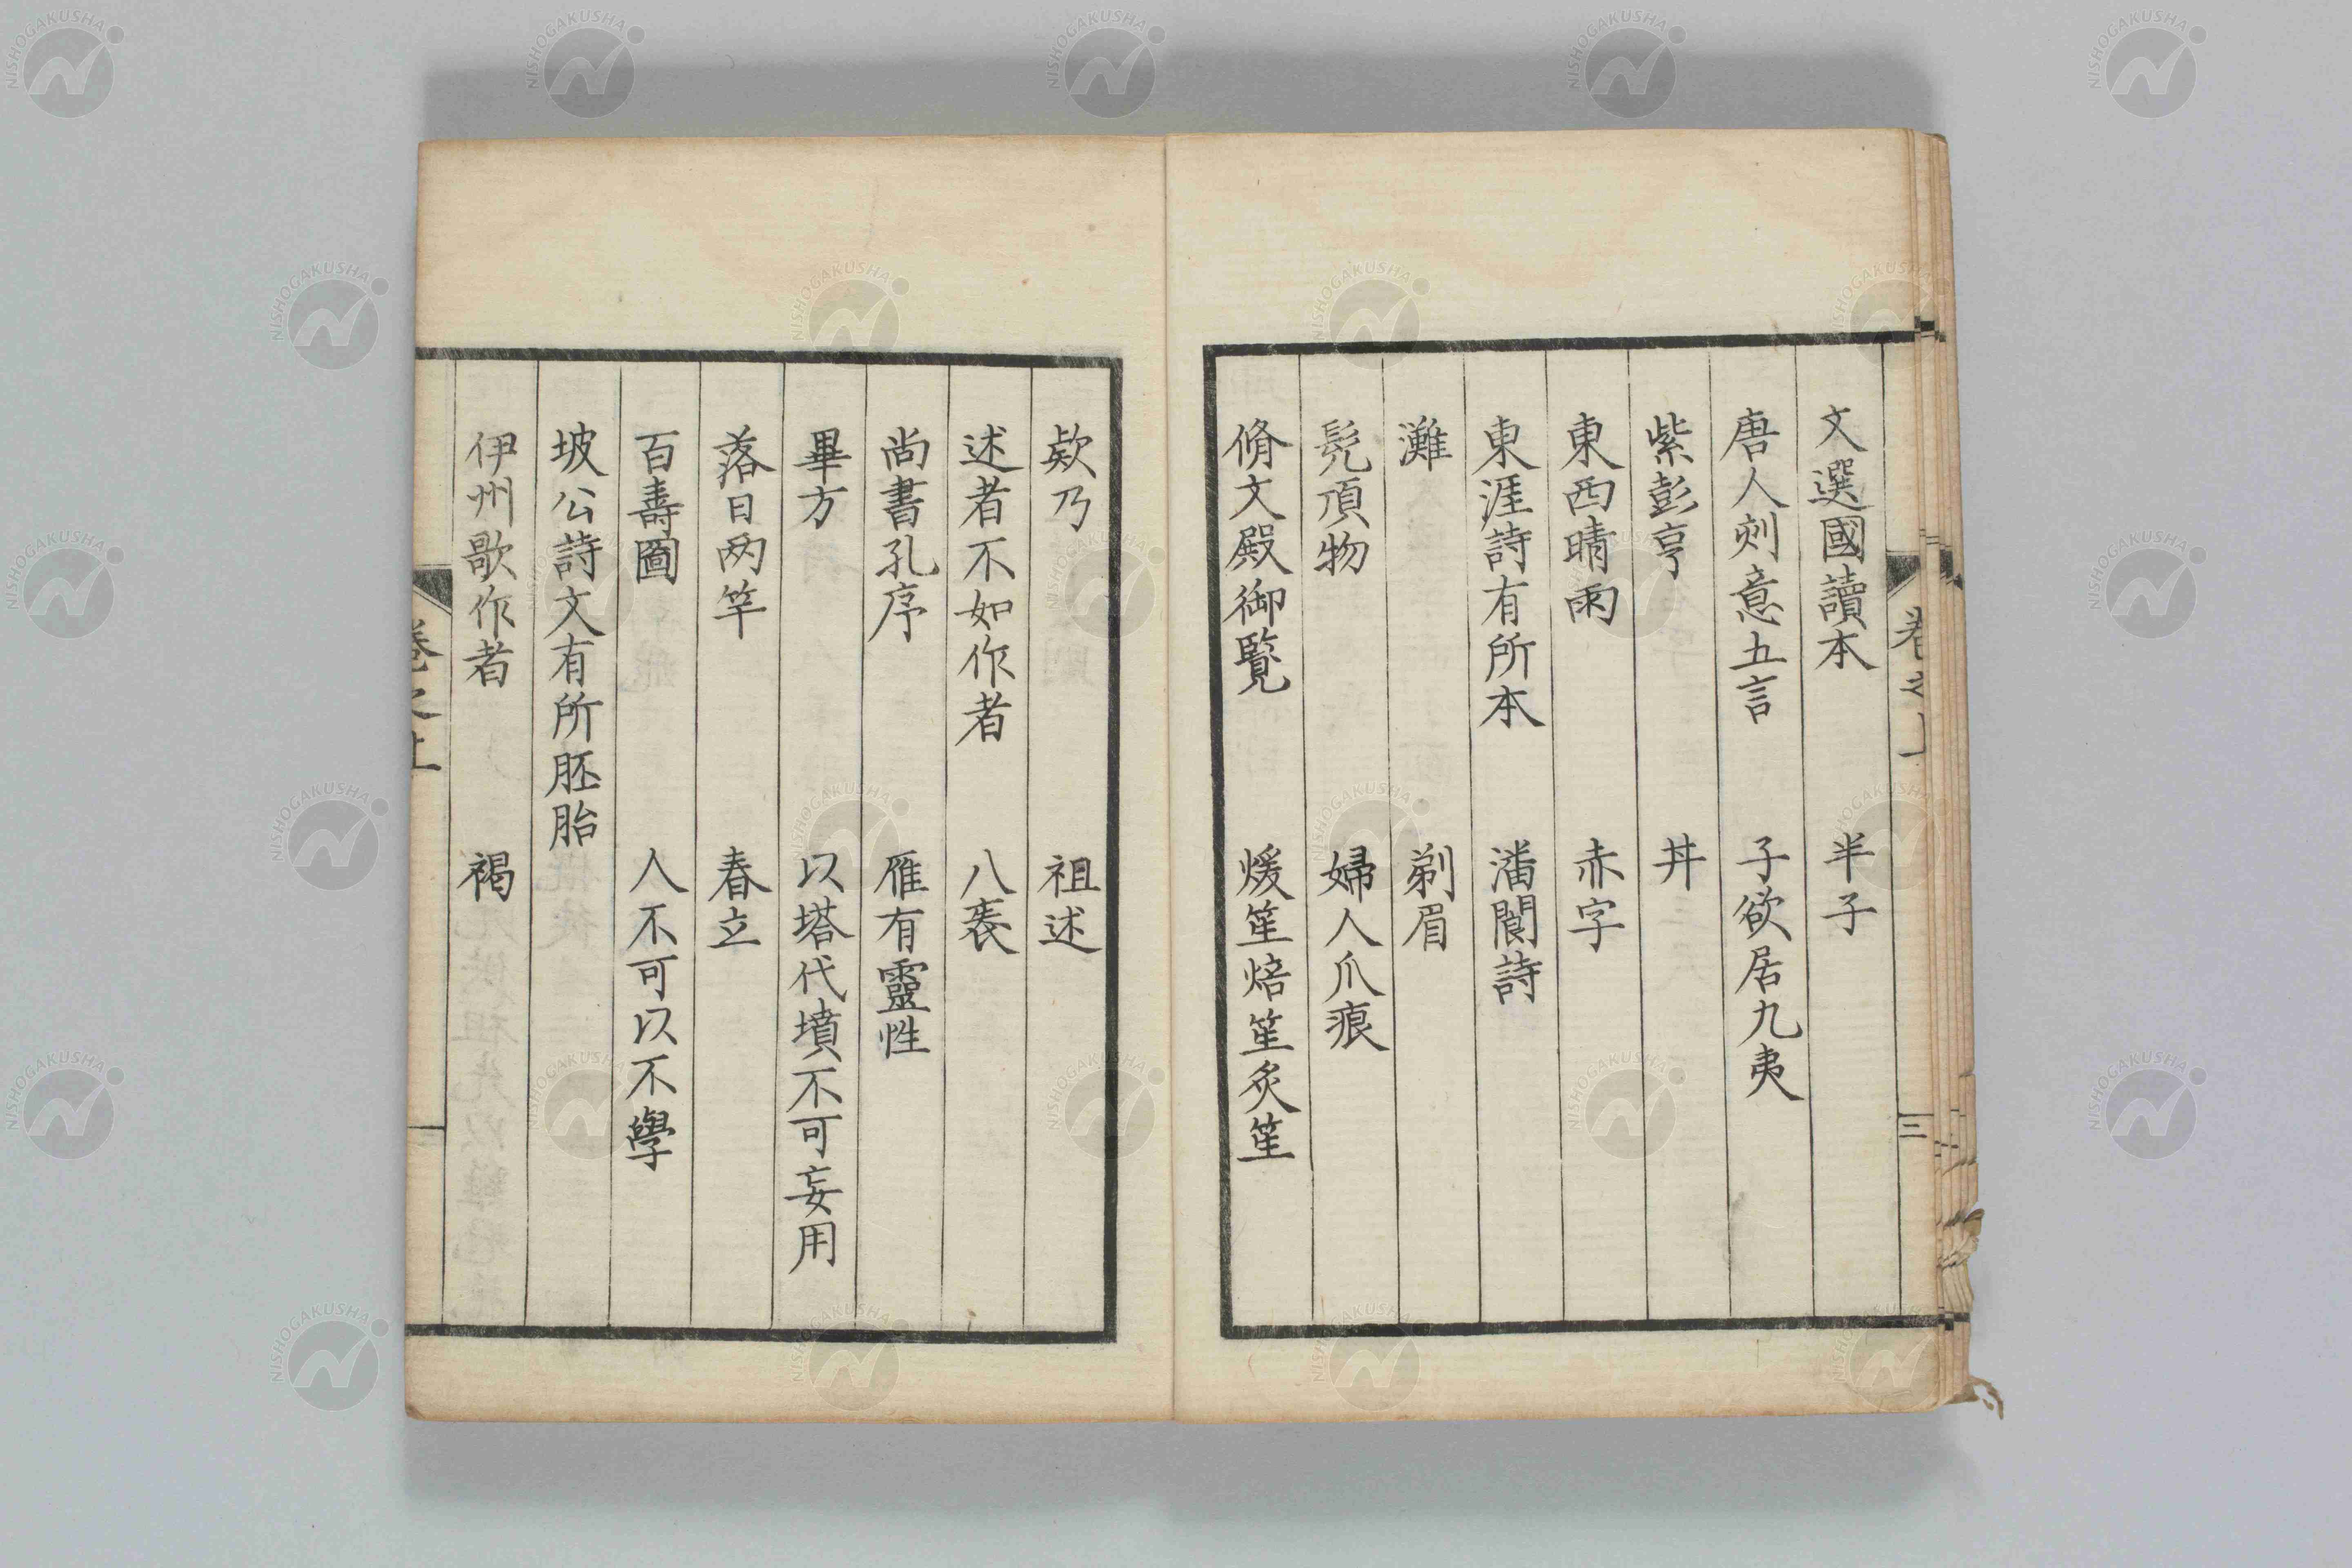 文選國讀本　半子
唐人刻意五言　子欲居九夷
紫彭亨　丼
東西晴雨　赤字
東涯詩有所本　潘閬詩
灘　剃眉
髡頂物　婦人爪痕
脩文殿御覧　煖笙焙笙炙笙
三
欵乃　祖述
述者不如作者　八袠
尚書孔序　雁有靈性
畢方　以塔代墳不可妄用
落日两竿　春立
百壽圖　人不可以不學
坡公詩文有所胚胎
伊州歌作者　褐
卷之上
NISHOGAKUSHA